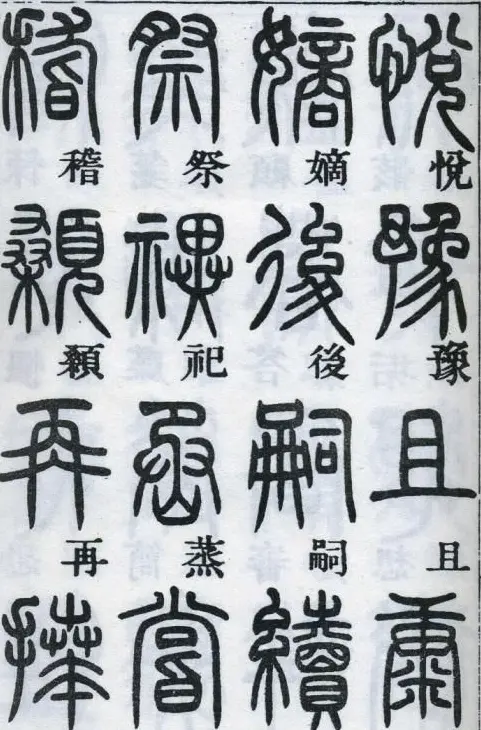 悅 悅 豫 豫 且 且 康
嫡 嫡 後 後 嗣 嗣 續
祭 祭 祀 祀 蒸 蒸 嘗
稽 稽 顙 顙 再 再 拜